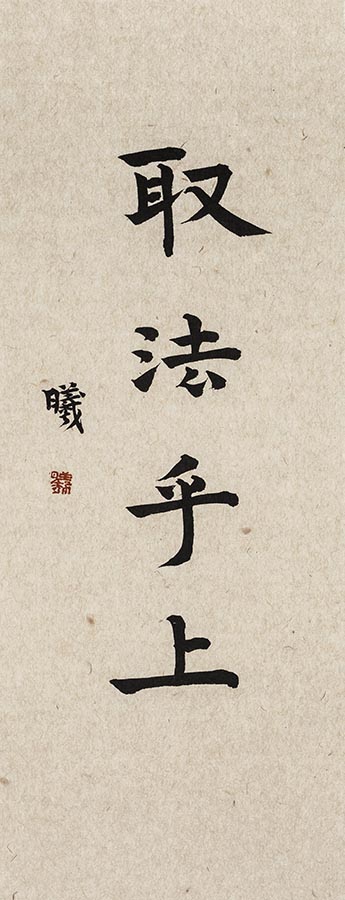 取法乎上
曦